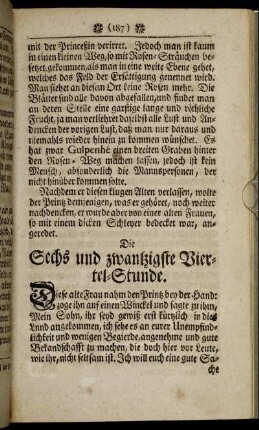 (187)
mit der Princeßin verirret. Jedoch man ist kaum
in einen kleinen Weg, so mit Rosen-Sträuchen be-
setzet gekommen, als man in eine weite Ebene gehet,
welches das Feld der Ersättigung genennet wird.
Man siehet an diesem Ort keine Rosen mehr. Die
Blätter sind alle davon abgefallen, und findet man
an deren Stelle eine garstige lange und röthliche
Frucht, ja man verliehrt daselbst alle Lust und An-
dencken der vorigen Lust, daß man nur daraus und
niemahls wieder hinein zu kommen wünschet. Es
hat zwar Gulpenhé einen breiten Graben hinter
den Rosen-Weg machen lassen, jedoch ist kein
Mensch, absonderlich die Mannspersonen, der
nicht hinüber kommen solte.
Nachdem er diesen klugen Alten verlassen, wolte
der Printz demjenigen, was er gehöret, noch weiter
nachdencken, er wurde aber von einer alten Frauen,
so mit einem dicken Schleyer bedecket war, an-
geredet.
Die
Sechs und zwantzigste Vier-
tel-Stunde.
Diese alte Frau nahm den Printz bey der Handt
zoge ihn auf einen Winckel und sagte zu ihm,
Mein Sohn, ihr seyd gewiß erst kürtzlich in dies
Land angekommen, ich sehe es an eurer Unempfind-
lichkeit und wenigen Begierde, angenehme und gute
Bekandschafft zu machen, die doch hier vor Leute,
wie ihr, nicht seltsam ist. Ich will euch eine gute Sa-
che